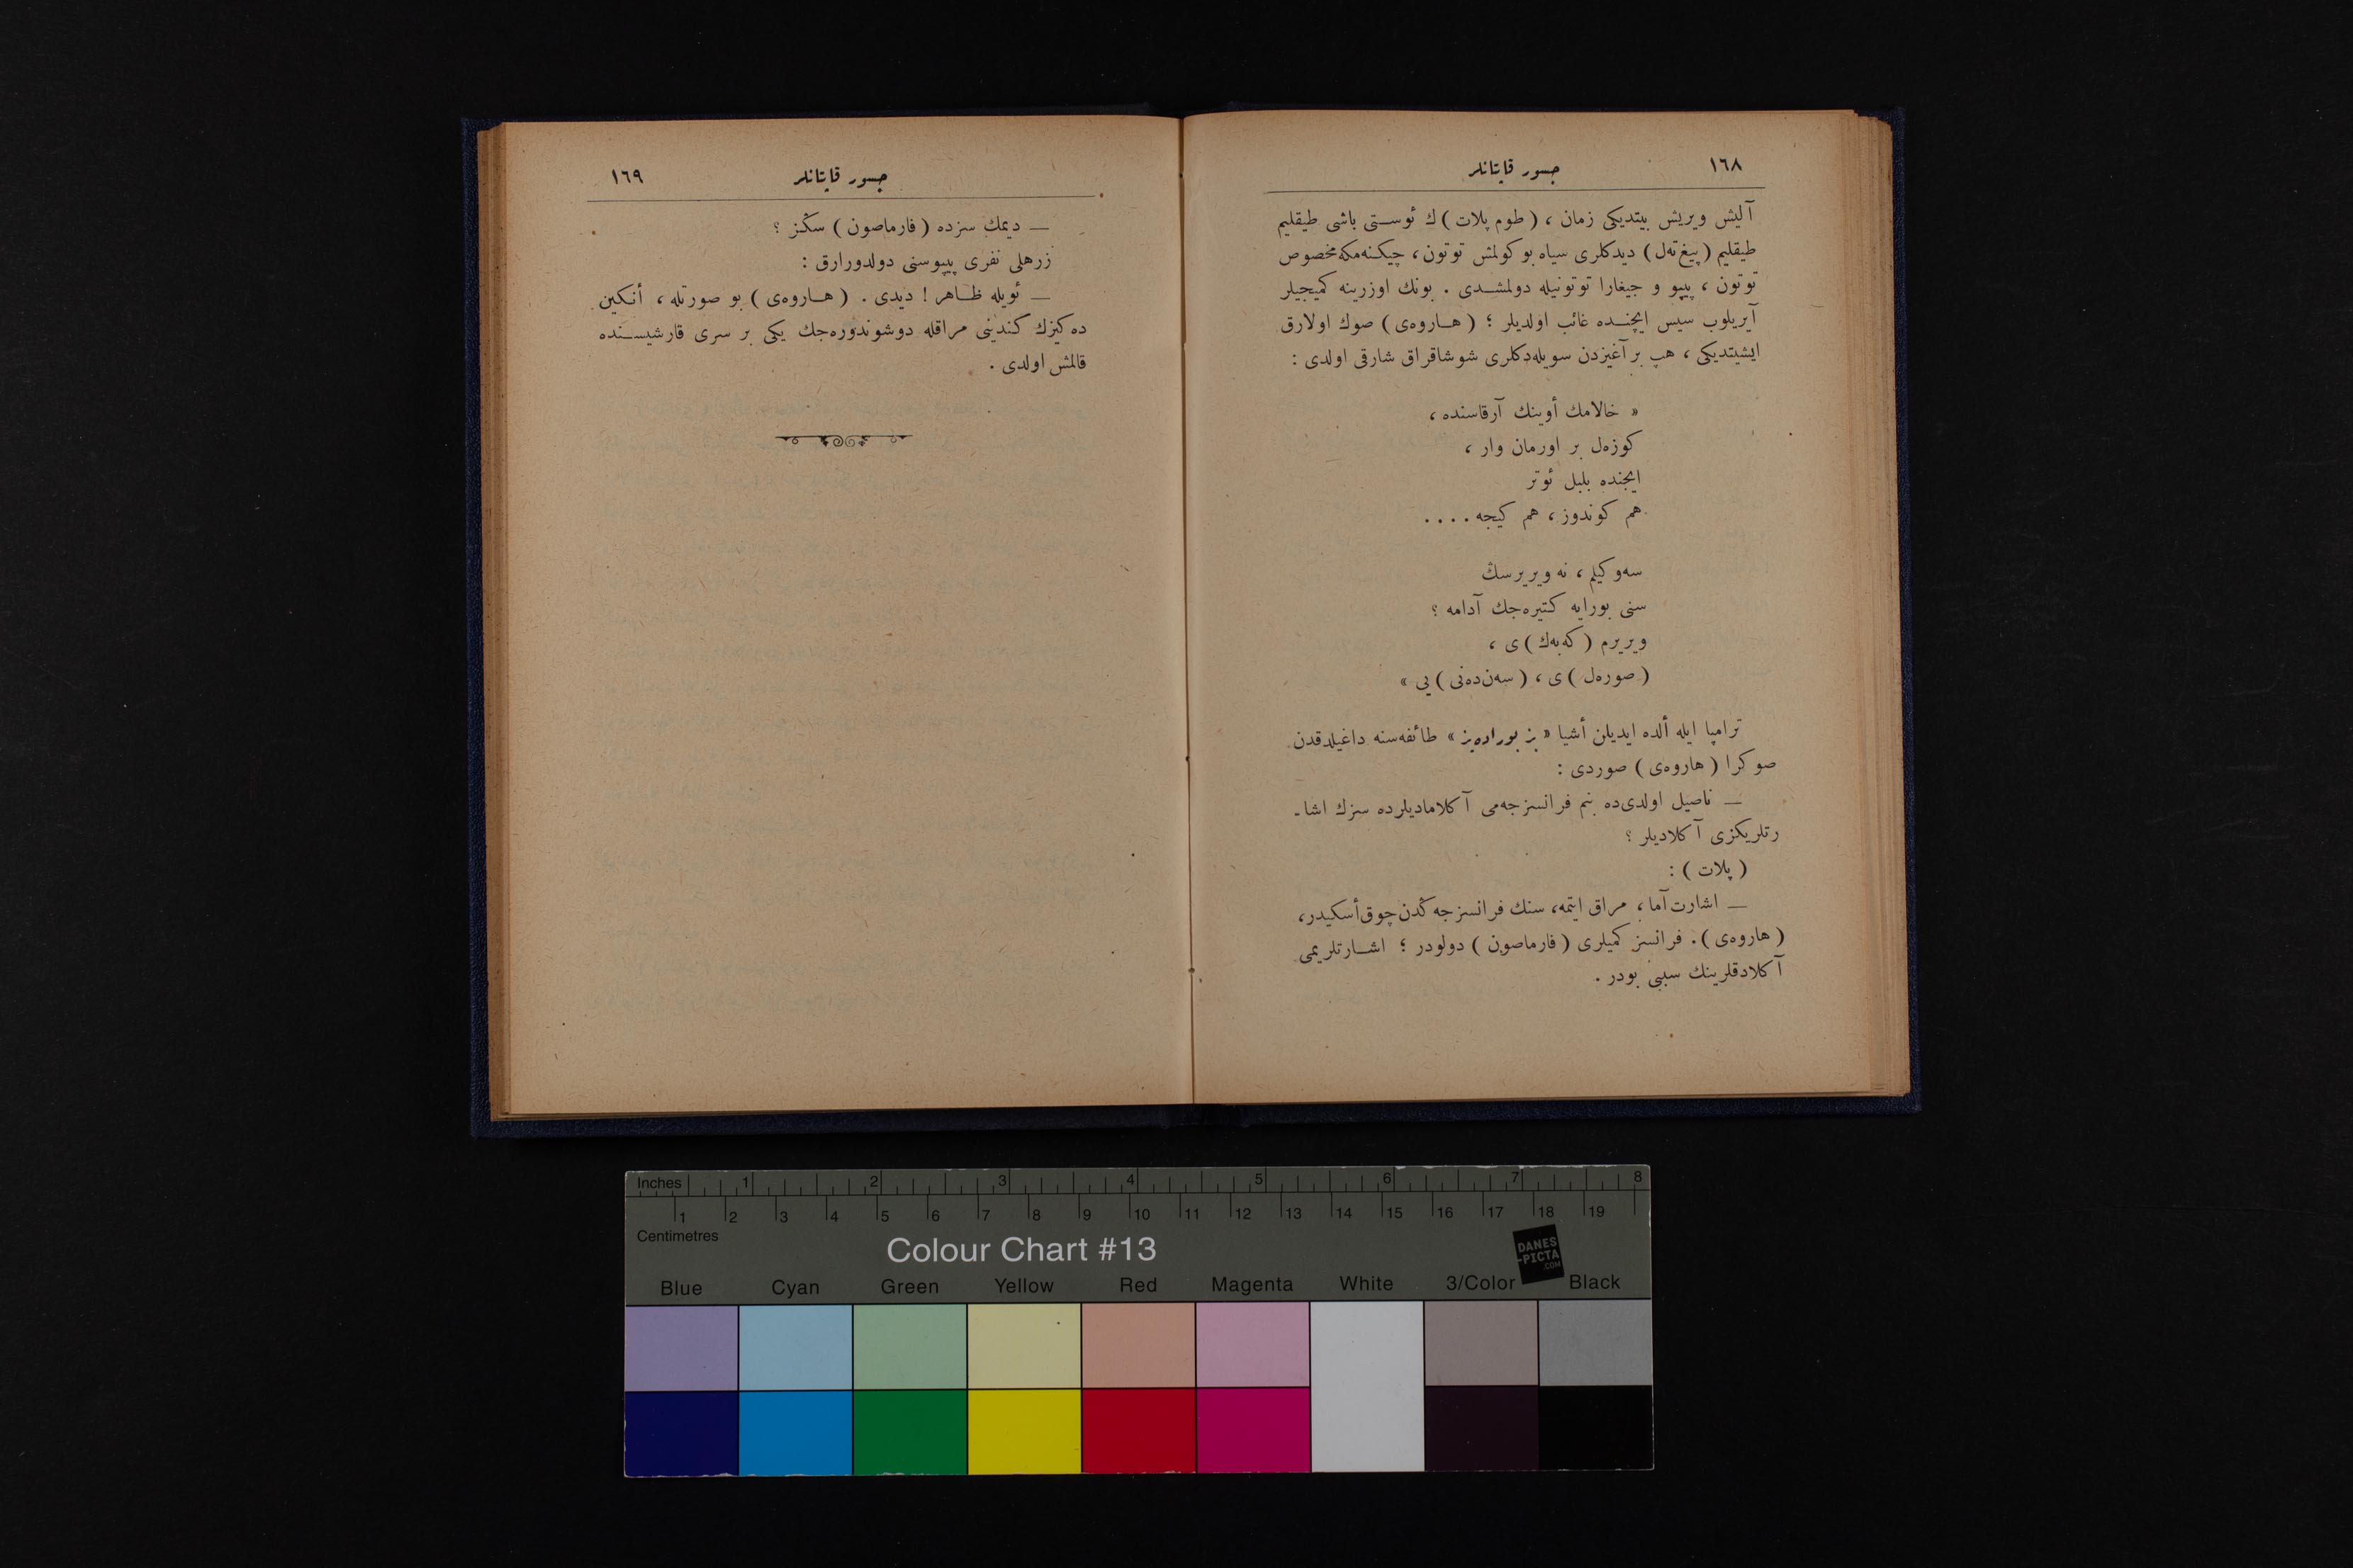 ١٦٨
جسور قاپتانلر
آلیش ویریش بیتدیكی زمان ، ( طوم پلات ) ك ئوستی باشی طیقلیم
طیقلیم ( پیغ‌تەل ) دیدكلری سیاه بوكولمش توتون ، چیكنه‌مكه مخصوص
توتون ، پیپو و جیغارا توتونیله دولمشدی . بونك اوزرینه كمیجیلر
آیریلوب سیس ایچنده غائب اولدیلر ؛ ( هاروه‌ی ) صوك اولارق
ایشیتدیكی ، هپ بر آغیزدن سویله‌دكلری شوشاقراق شارقی اولدی :
« خالامك أوینك آرقاسنده ،
كوزه‌ل بر اورمان وار ،
ایچنده بلبل ئوتر
هم كوندوز ، هم كیجه ....
سه‌وكیلم ، نه ویریرسڭ
سنی بورایه كتیره‌جك آدامه ؟
ویریرم ( كه‌به‌ك ) ی ،
( صوره‌ل ) ی ، ( سه‌ن‌ده‌نی ) یی »
ترامپا ایله ألده ایدیلن أشیا « بز بوراده‌یز » طائفه‌سنه داغیلدقدن
صوكرا ( هاروه‌ی ) صوردی :
— ناصیل اولدی‌ده بنم فرانسزجه‌می آكلامادیلرده سزك اشا-
رتلریكزی آكلادیلر ؟
( پلات ) :
— اشارت‌آما ، مراق ایتمه ، سنك فرانسزجه‌كڭدن چوق أسكیدر ،
( هاروه‌ی ) . فرانسز كمیلری ( فارماصون ) دولودر ؛ اشارتلریمی
آكلادقلرینك سببی بودر .
جسور قاپتانلر
١٦٩
— دیمك سزده ( فارماصون ) سڭز ؟
زرهلی نفری پیپوسنی دولدورارق :
— ئویله ظاهر ! دیدی . ( هاروه‌ی ) بو صورتله ، أنكین
ده‌كیزك كندینی مراقله دوشوندوره‌جك یكی بر سری قارشیسنده
قالمش اولدی .
Inches 1 2 3 4 5 6 7 8
1 2 3 4 5 6 7 8 9 10 11 12 13 14 15 16 17 18 19
Centimetres
Colour Chart #13
DANES
-PICTA
.COM
Blue Cyan Green Yellow Red Magenta White 3/Color Black